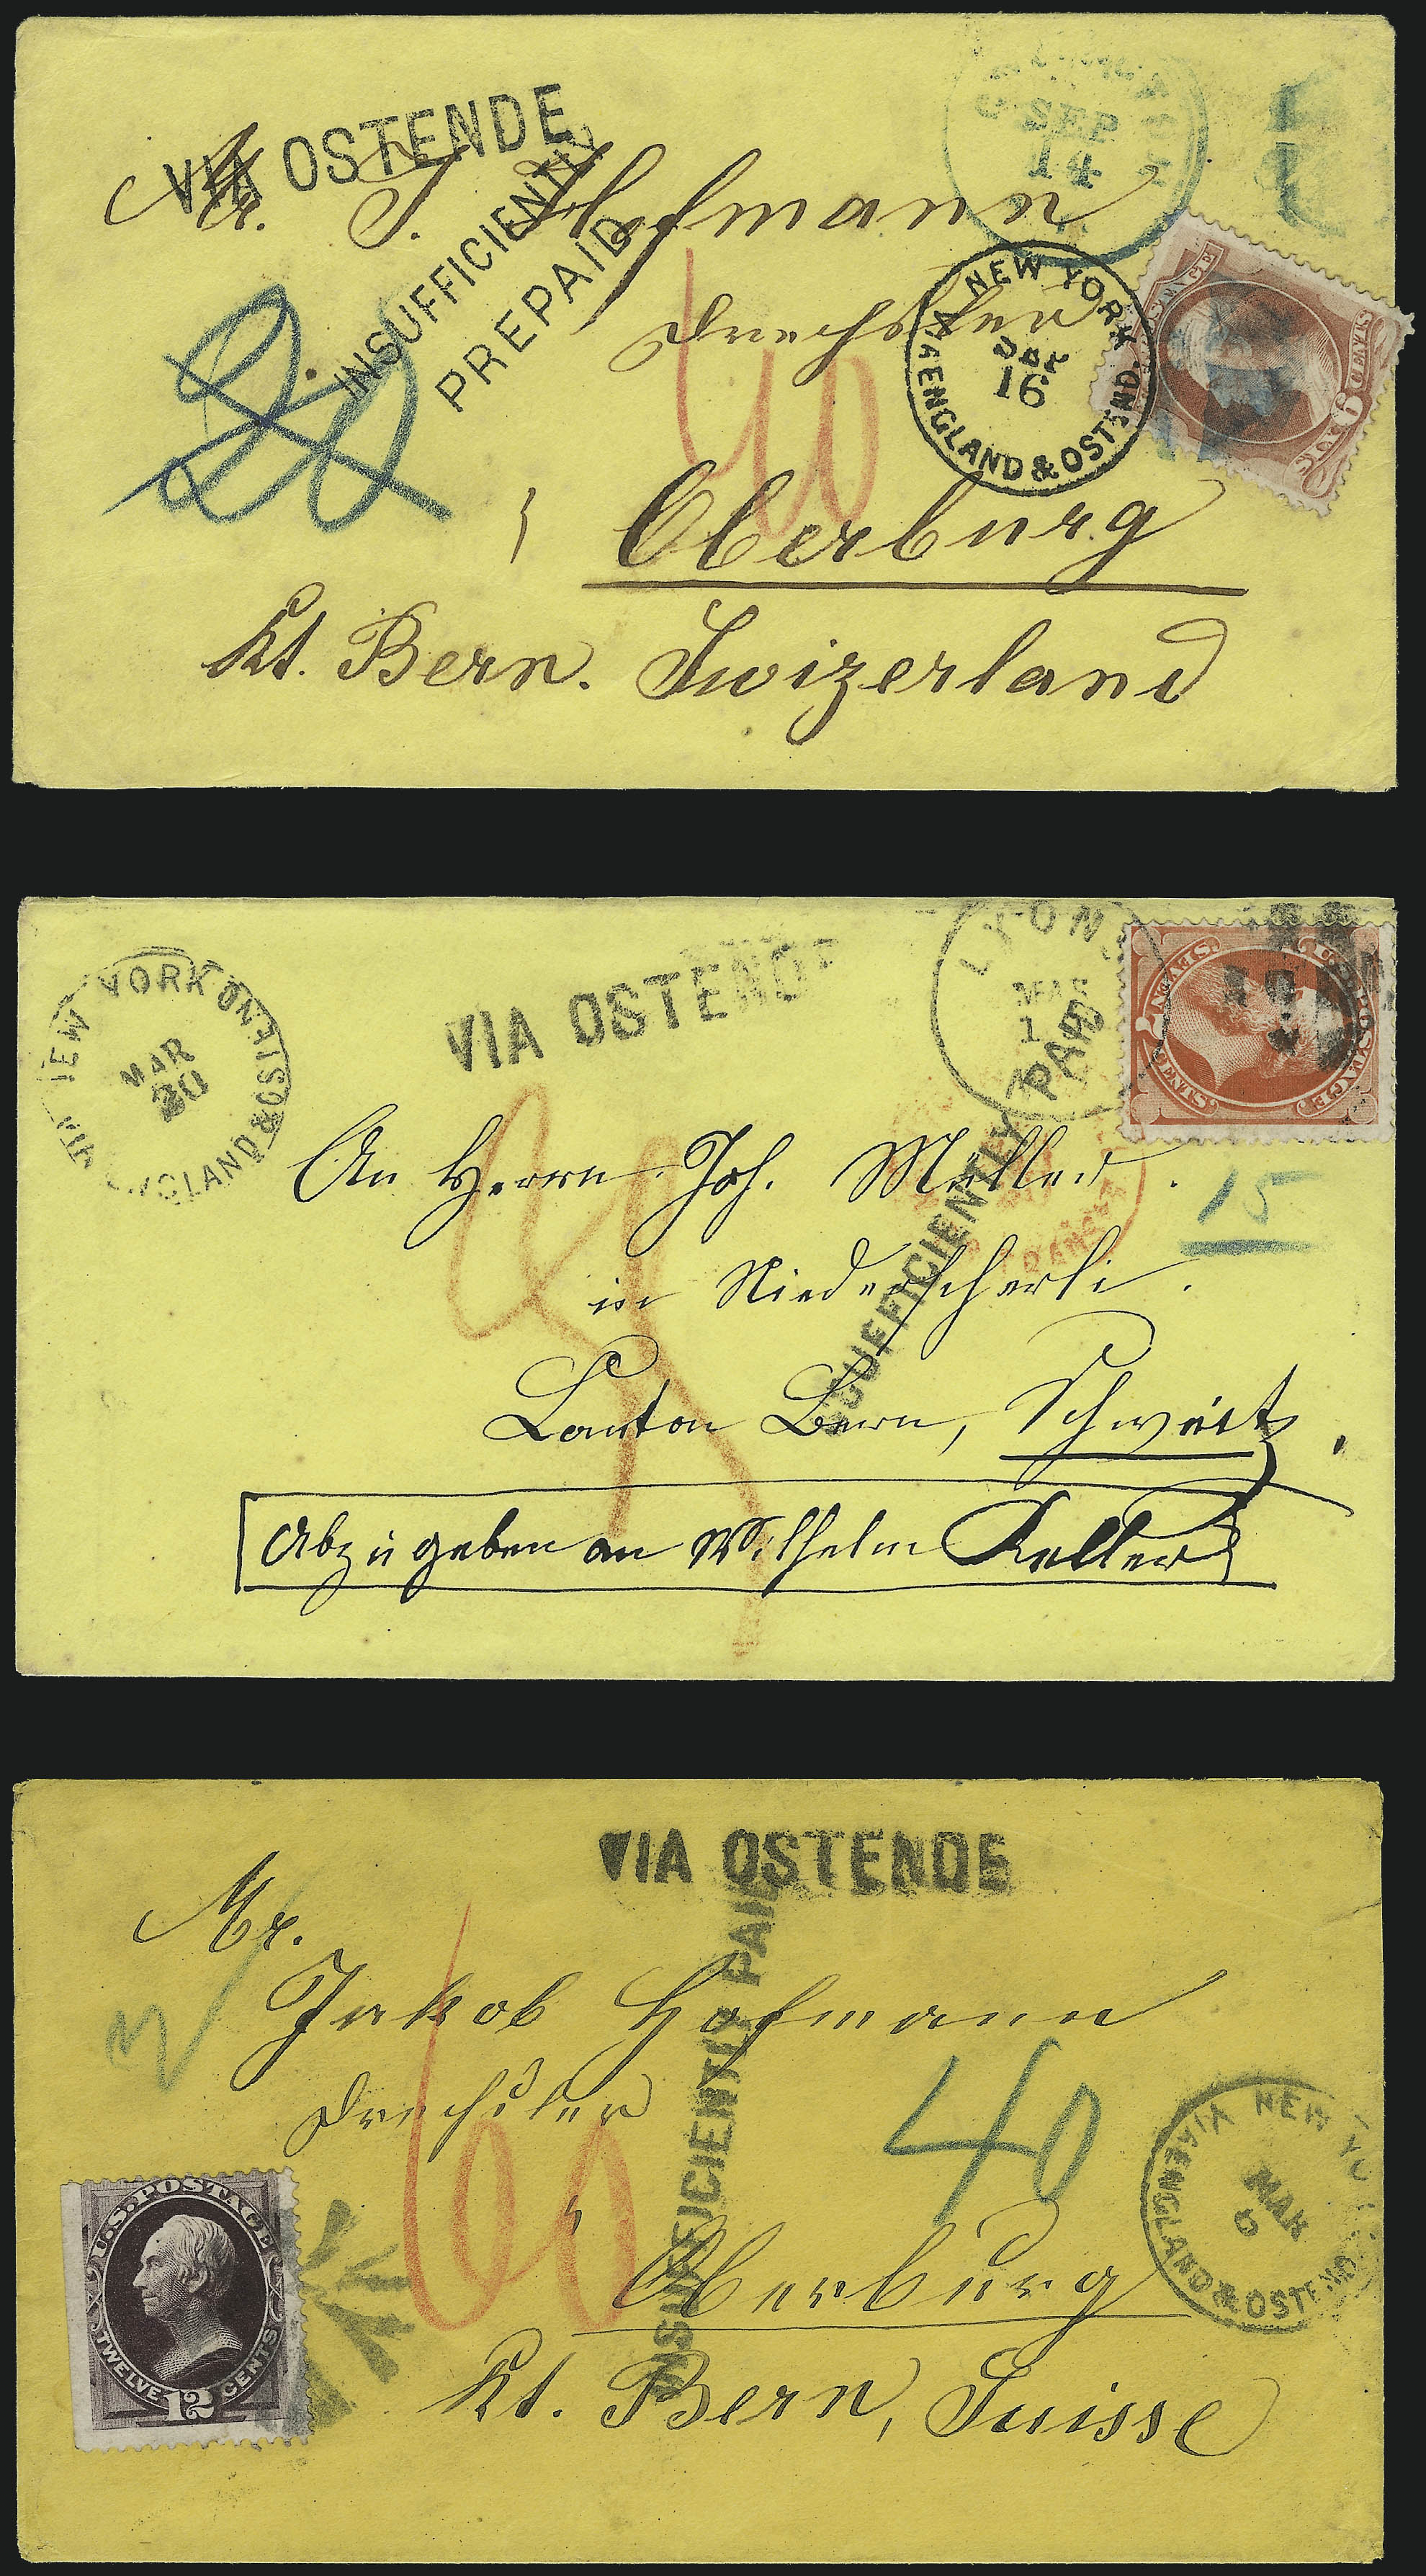 VIA OSTENDE
INSUFFICIENTLY
PREPAID
SEP
14
Mr. J. Hofmann
Drechsler
NEW YORK
SEP
16
VIA ENGLAND & OSTEND.
U.S. POSTAGE
SIX 6 CENTS
20
60
Oberburg
Kt. Bern. Swizerland
NEW YORK
MAR
20
VIA ENGLAND & OSTEND
VIA OSTENDE
LYONS
MAR
INSUFFICIENTLY PAID
U.S. POSTAGE
SEVEN 7 CENTS
15
An Herrn Joh. Müller.
in Niederscherli.
Canton Bern, Schweitz,
Abzugeben an Wilhelm Keller
VIA OSTENDE
INSUFFICIENTLY PAID
Mr.
Jakob Hofmann
Drechsler
60
40
VIA ENGLAND & OSTEND
NEW YORK
MAR
U.S. POSTAGE
TWELVE 12 CENTS
Oberburg
Kt. Bern, Suisse